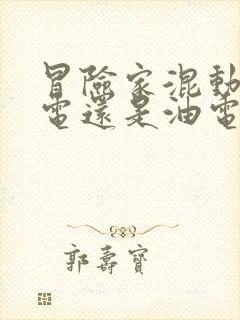 冒險家混動
電還是油電
郭壽寶